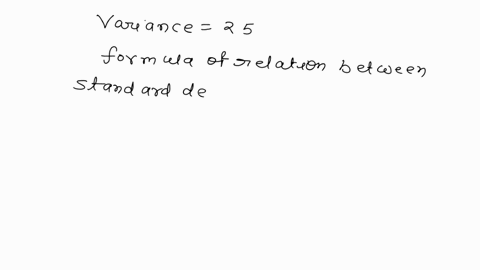 Variance = 25
formula of relation between
standard de